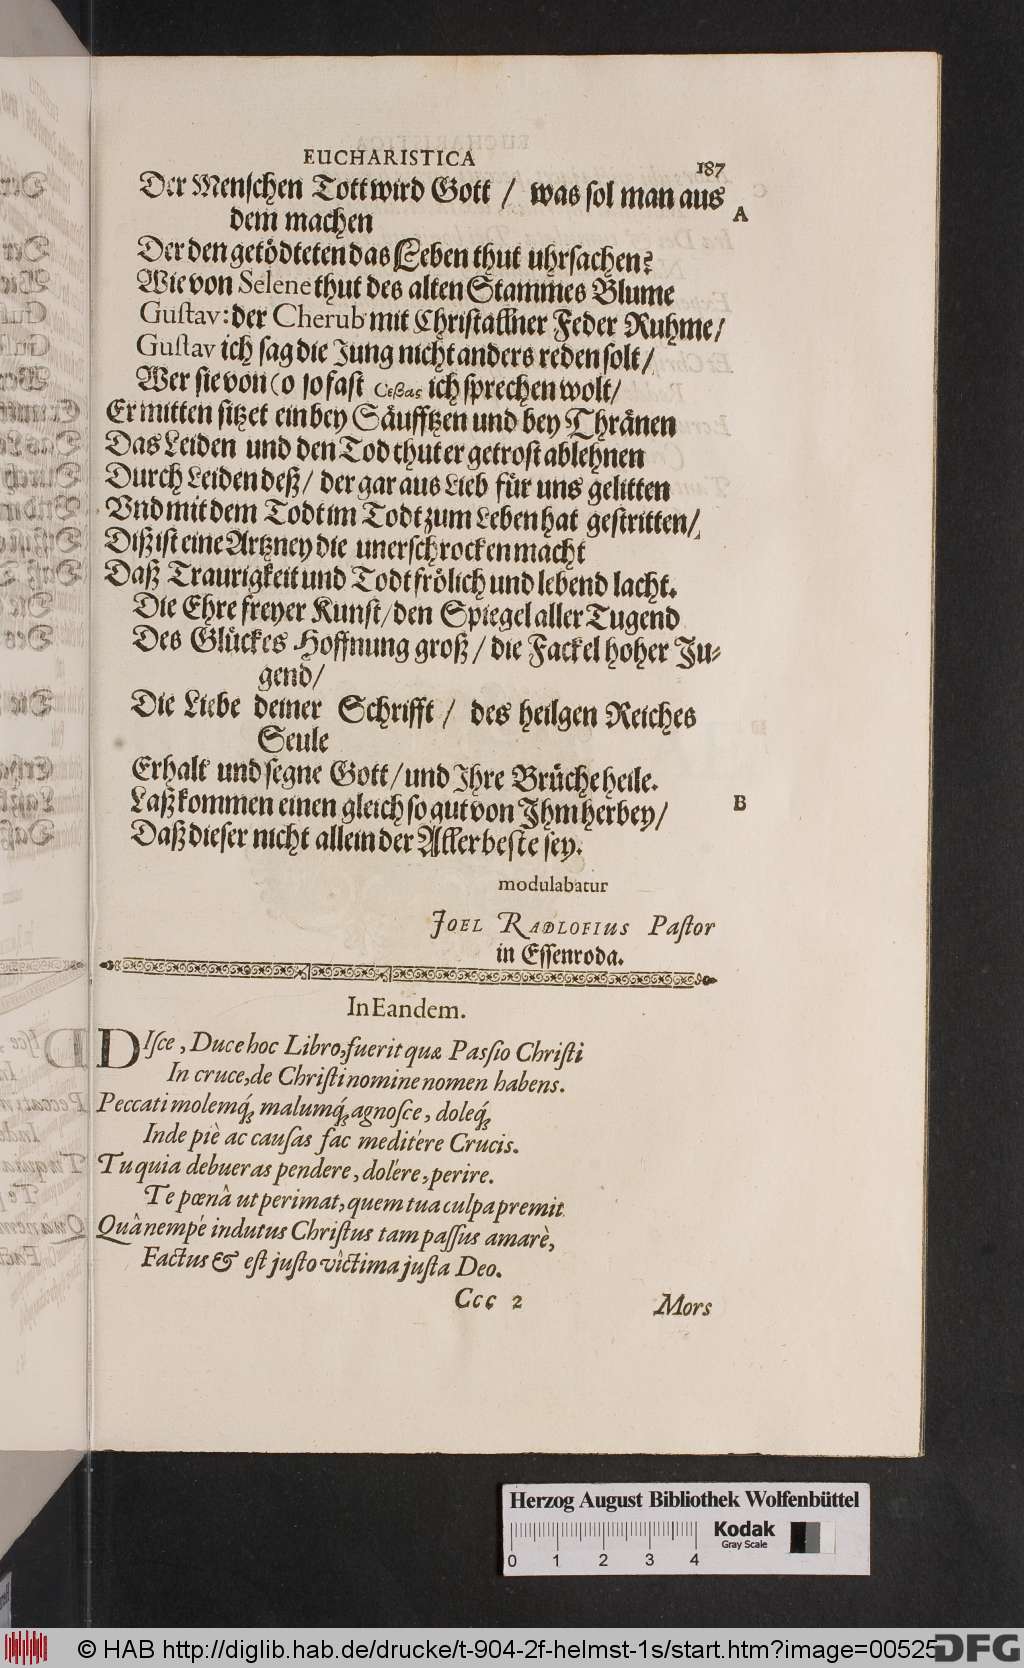 EUCHARISTICA 187
Der Menschen Tott wird Gott / was sol man aus
A
dem machen
Der den getödteten das Leben thut uhrsachen?
Wie von Selene thut des alten Stammes Blume
Gustav: der Cherub mit Christallner Feder Ruhme /
Gustav ich sag die Jung nicht anders reden solt /
Wer sie von so fast ich sprechen wolt /
Er mitten sitzet ein bey Säufftzen und bey Thränen
Das Leiden und den Tod thut er getrost ablehnen
Durch Leiden deß / der gar aus Lieb für uns gelitten
Vnd mit dem Todt im Todt zum Leben hat gestritten /
Diß ist eine Artzney die unerschrocken macht
Daß Traurigkeit und Todt frölich und lebend lacht.
Die Ehre freyer Kunst / den Spiegel aller Tugend
Des Glückes Hoffnung groß / die Fackel hoher Ju-
gend /
Die Liebe deiner Schrifft / des heilgen Reiches
Seule
Erhalt und segne Gott / und Ihre Brüche heile.
Laß kommen einen gleich so gut von Ihm herbey /
B
Daß dieser nicht allein der Allerbeste sey.
modulabatur
JOEL RADLOFIUS Pastor
in Essenroda.
In Eandem.
DIsce, Duce hoc Libro, fuerit quæ Passio Christi
In cruce, de Christi nomine nomen habens.
Peccati molemq́; malumq́; agnosce, doleq́;
Inde piè ac causas fac meditére Crucis.
Tu quia debueras pendere, dolére, perire.
Te pœnâ ut perimat, quem tua culpa premit
Quâ nempé indutus Christus tam passus amarè,
Factus & est justo victima justa Deo.
Ccc 2 Mors
Herzog August Bibliothek Wolfenbüttel
Kodak
Gray Scale
0 1 2 3 4
© HAB http://diglib.hab.de/drucke/t-904-2f-helmst-1s/start.htm?image=00525
DFG